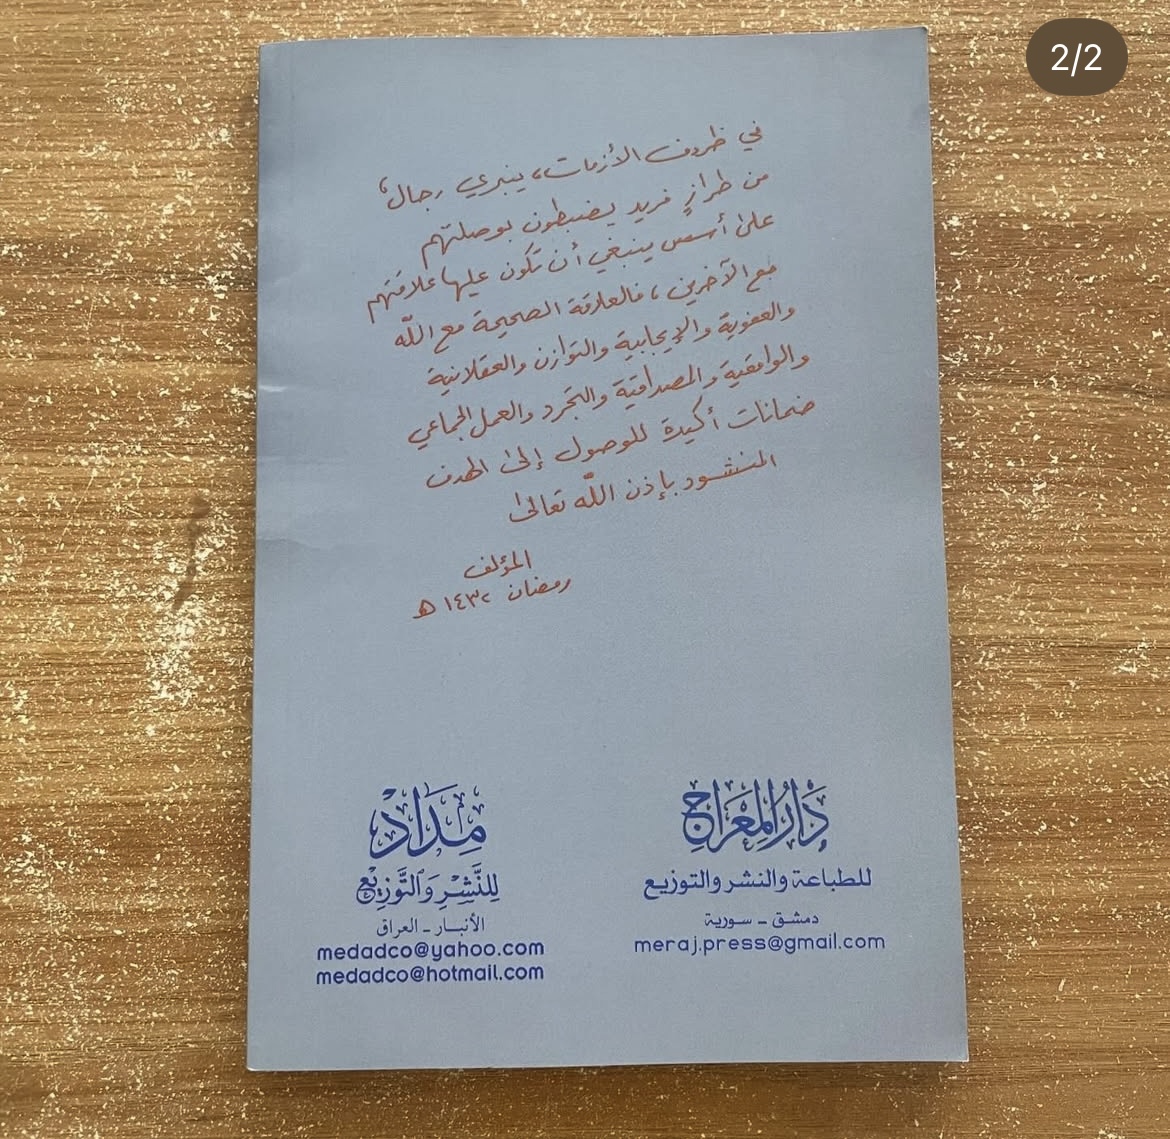 2/2
في ظروف الأزمات، ينبري رجال،
من طرازٍ فريد يضبطون بوصلتهم
على أسس ينبغي أن تكون عليها علاقتهم
مع الآخرين، فالعلاقة الصحيحة مع اللّه
والعفوية والإيجابية والتوازن والعقلانية
والواقعية والمصداقية والتجرد والعمل الجماعي
ضمانات أكيدة للوصول إلى الهدف
المنشود بإذن اللّه تعالى
المؤلف
رمضان ١٤٣٢ هـ
دَارُ المِعْرَاج
للطباعة والنشر والتوزيع
دمشق ـ سورية
meraj.press@gmail.com
مِدَادْ
لِلنَّشْرِ وَالتَّوْزِيْعِ
الأنبـار ـ العراق
medadco@yahoo.com
medadco@hotmail.com